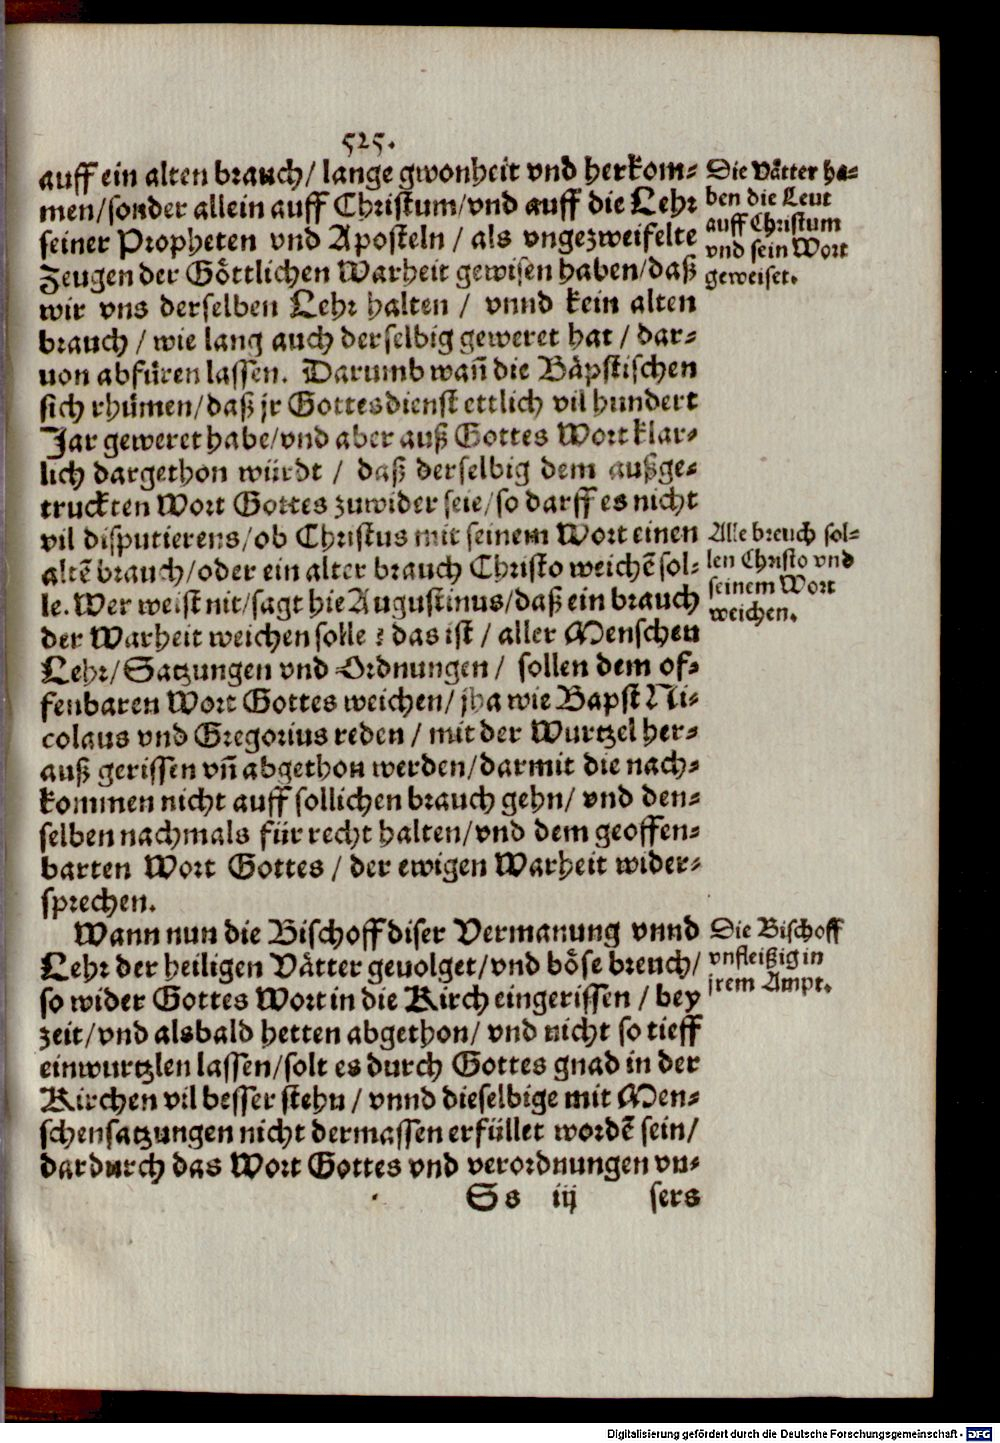 525.
auff ein alten brauch/ lange gwonheit vnd herkom-
men/sonder allein auff Christum/vnd auff die Lehr
seiner Propheten vnd Aposteln / als vngezweifelte
Zeugen der Göttlichen Warheit gewisen haben/daß
wir vns derselben Lehr halten / vnnd kein alten
brauch / wie lang auch derselbig geweret hat / dar-
uon abfüren lassen. Darumb wañ die Bäpstischen
sich rhümen/daß jr Gottesdienst ettlich vil hundert
Jar geweret habe/vnd aber auß Gottes Wort klar-
lich dargethon würdt / daß derselbig dem außge-
truckten Wort Gottes zuwider seie/so darff es nicht
vil disputierens/ob Christus mit seinem Wort einen
altẽ brauch/oder ein alter brauch Christo weichẽ sol-
le. Wer weist nit/sagt hie Augustinus/daß ein brauch
der Warheit weichen solle ? das ist / aller Menschen
Lehr/Satzungen vnd Ordnungen / sollen dem of-
fenbaren Wort Gottes weichen/ jha wie Bapst Ni-
colaus vnd Gregorius reden / mit der Wurtzel her-
auß gerissen vñ abgethon werden/darmit die nach-
kommen nicht auff sollichen brauch gehn/ vnd den-
selben nachmals für recht halten/vnd dem geoffen-
barten Wort Gottes / der ewigen Warheit wider-
sprechen.
Wann nun die Bischoff diser Vermanung vnnd
Lehr der heiligen Vätter geuolget/vnd böse breuch/
so wider Gottes Wort in die Kirch eingerissen / bey
zeit/vnd alsbald hetten abgethon/ vnd nicht so tieff
einwurtzlen lassen/solt es durch Gottes gnad in der
Kirchen vil besser stehn / vnnd dieselbige mit Men-
schensatzungen nicht dermassen erfüllet wordẽ sein/
dardurch das Wort Gottes vnd verordnungen vn-
Ss iij sers
Die Vätter ha-
ben die Leut
auff Christum
vnd sein Wort
geweiset.
Alle breuch sol-
len Christo vnd
seinem Wort
weichen.
Die Bischoff
vnfleißig in
jrem Ampt.
Digitalisierung gefördert durch die Deutsche Forschungsgemeinschaft - DFG